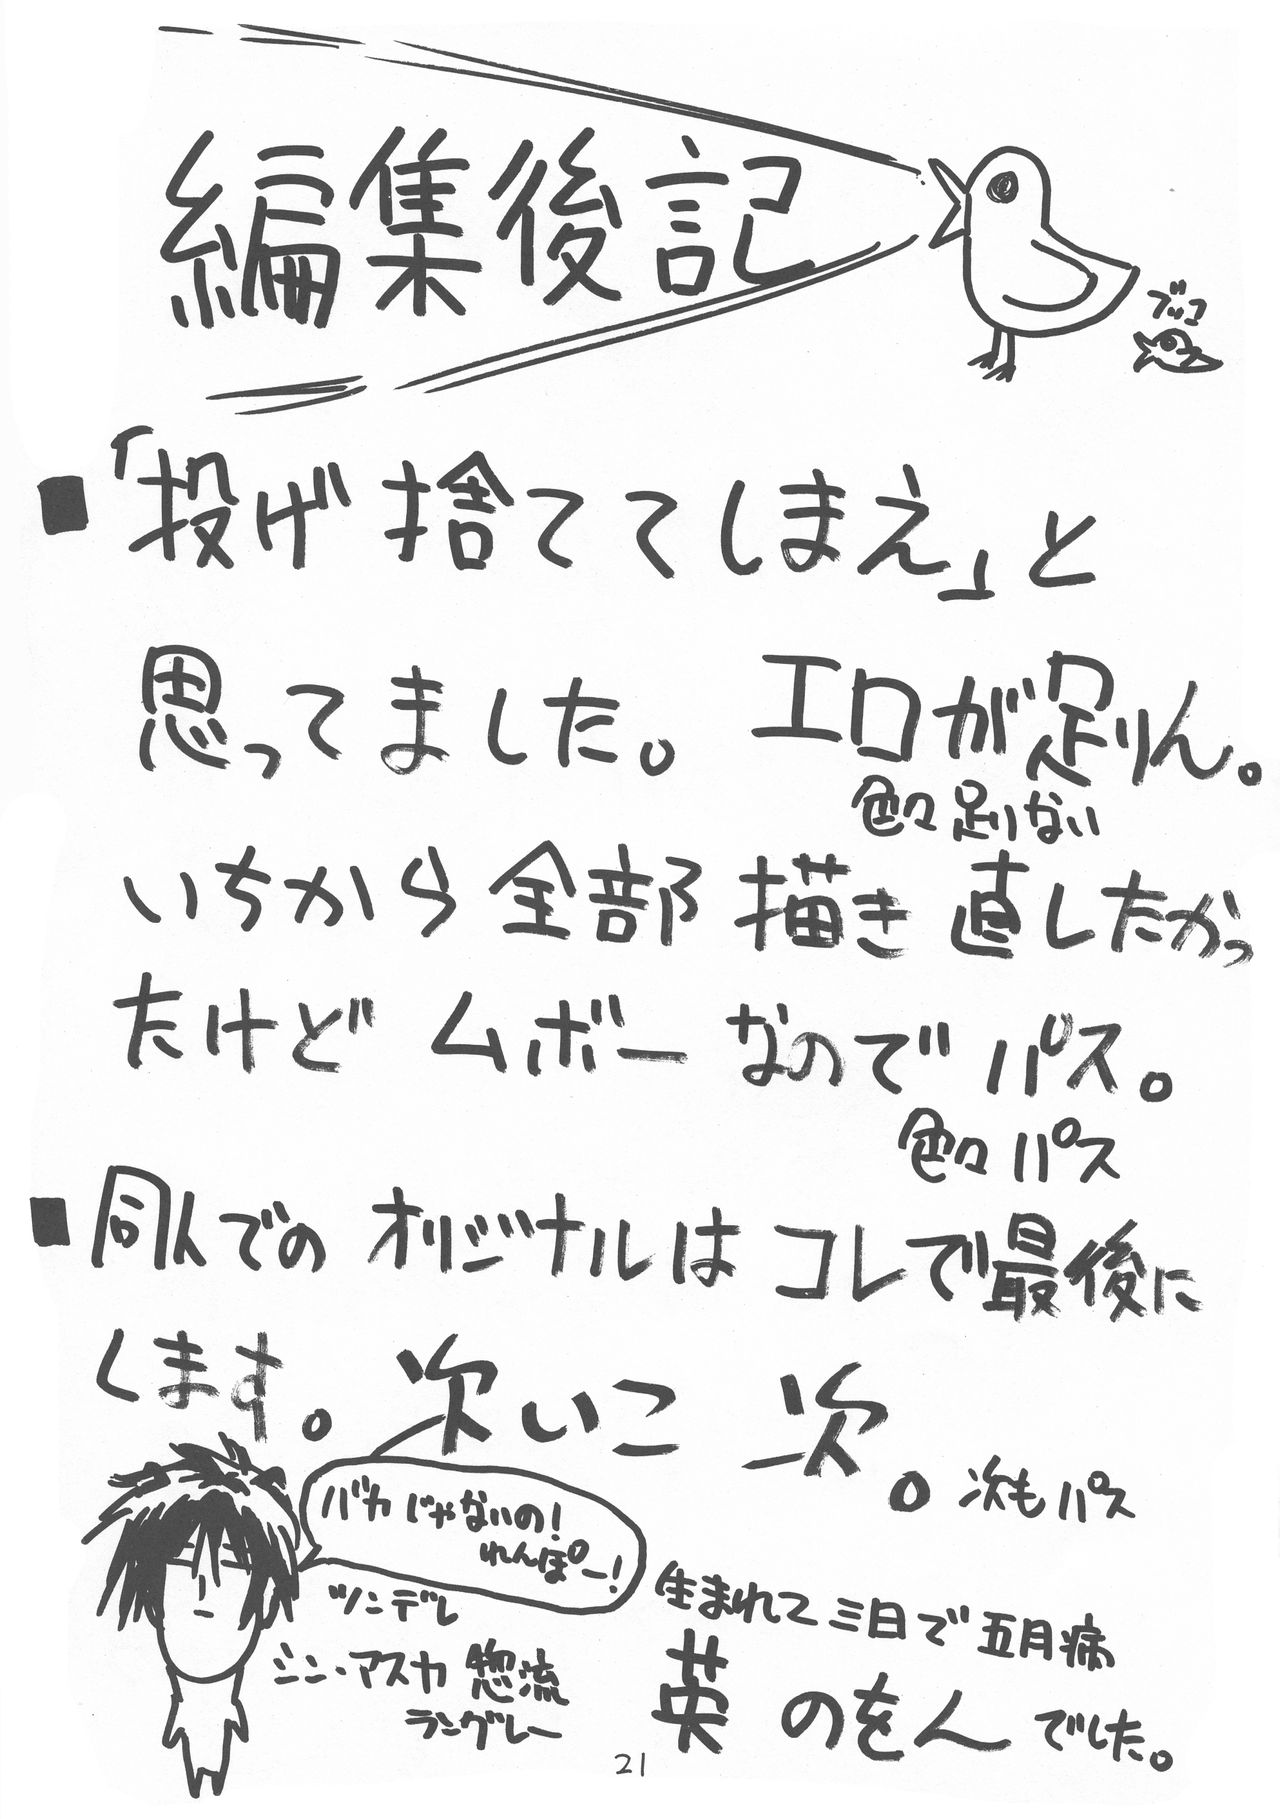 編集後記
ブツコ
■「投げ捨ててしまえ」と
思ってました。エロが足りん。
色々足りない
いちから全部描き直したかっ
たけどムボーなのでパス。
色々パス
■同人でのオリジナルはコレで最後に
します。次いこ次。次もパス
バカじゃないの!
れんぽー!
ツンデレ
シン・アスカ惣流
ラングレー
生まれて三日で五月病
英のをんでした。
21